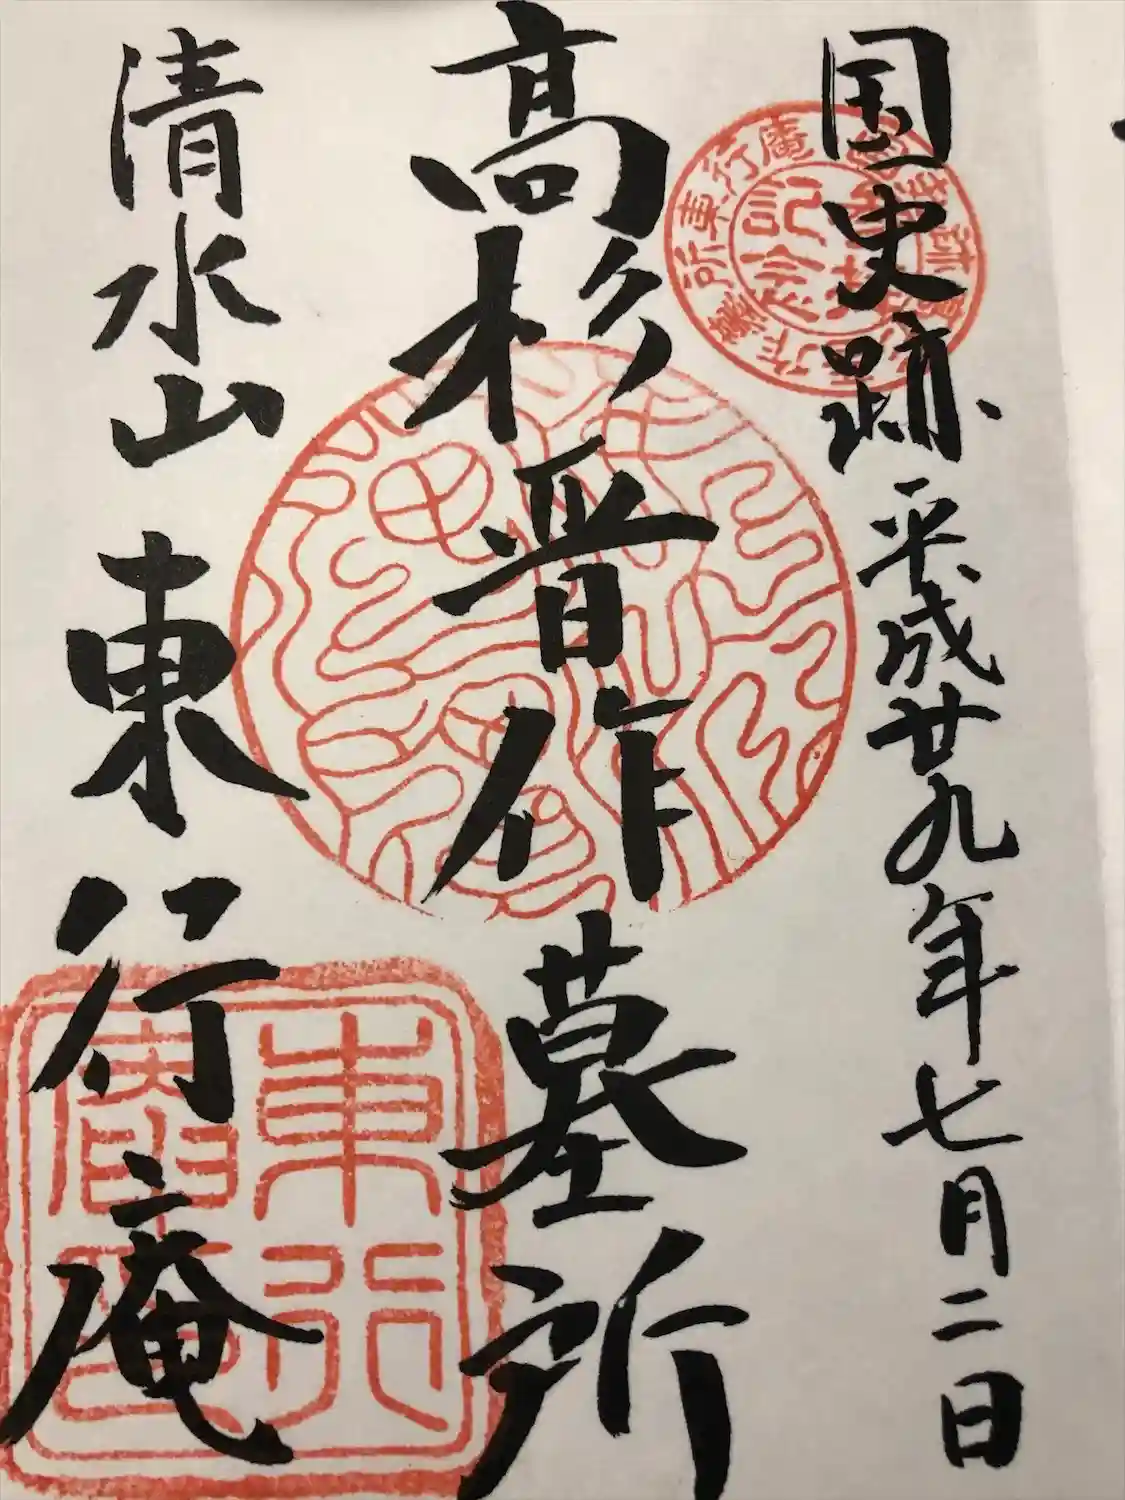 国史跡 平成廿九年七月二日
高杉晋作墓所
清水山 東行庵
東行庵